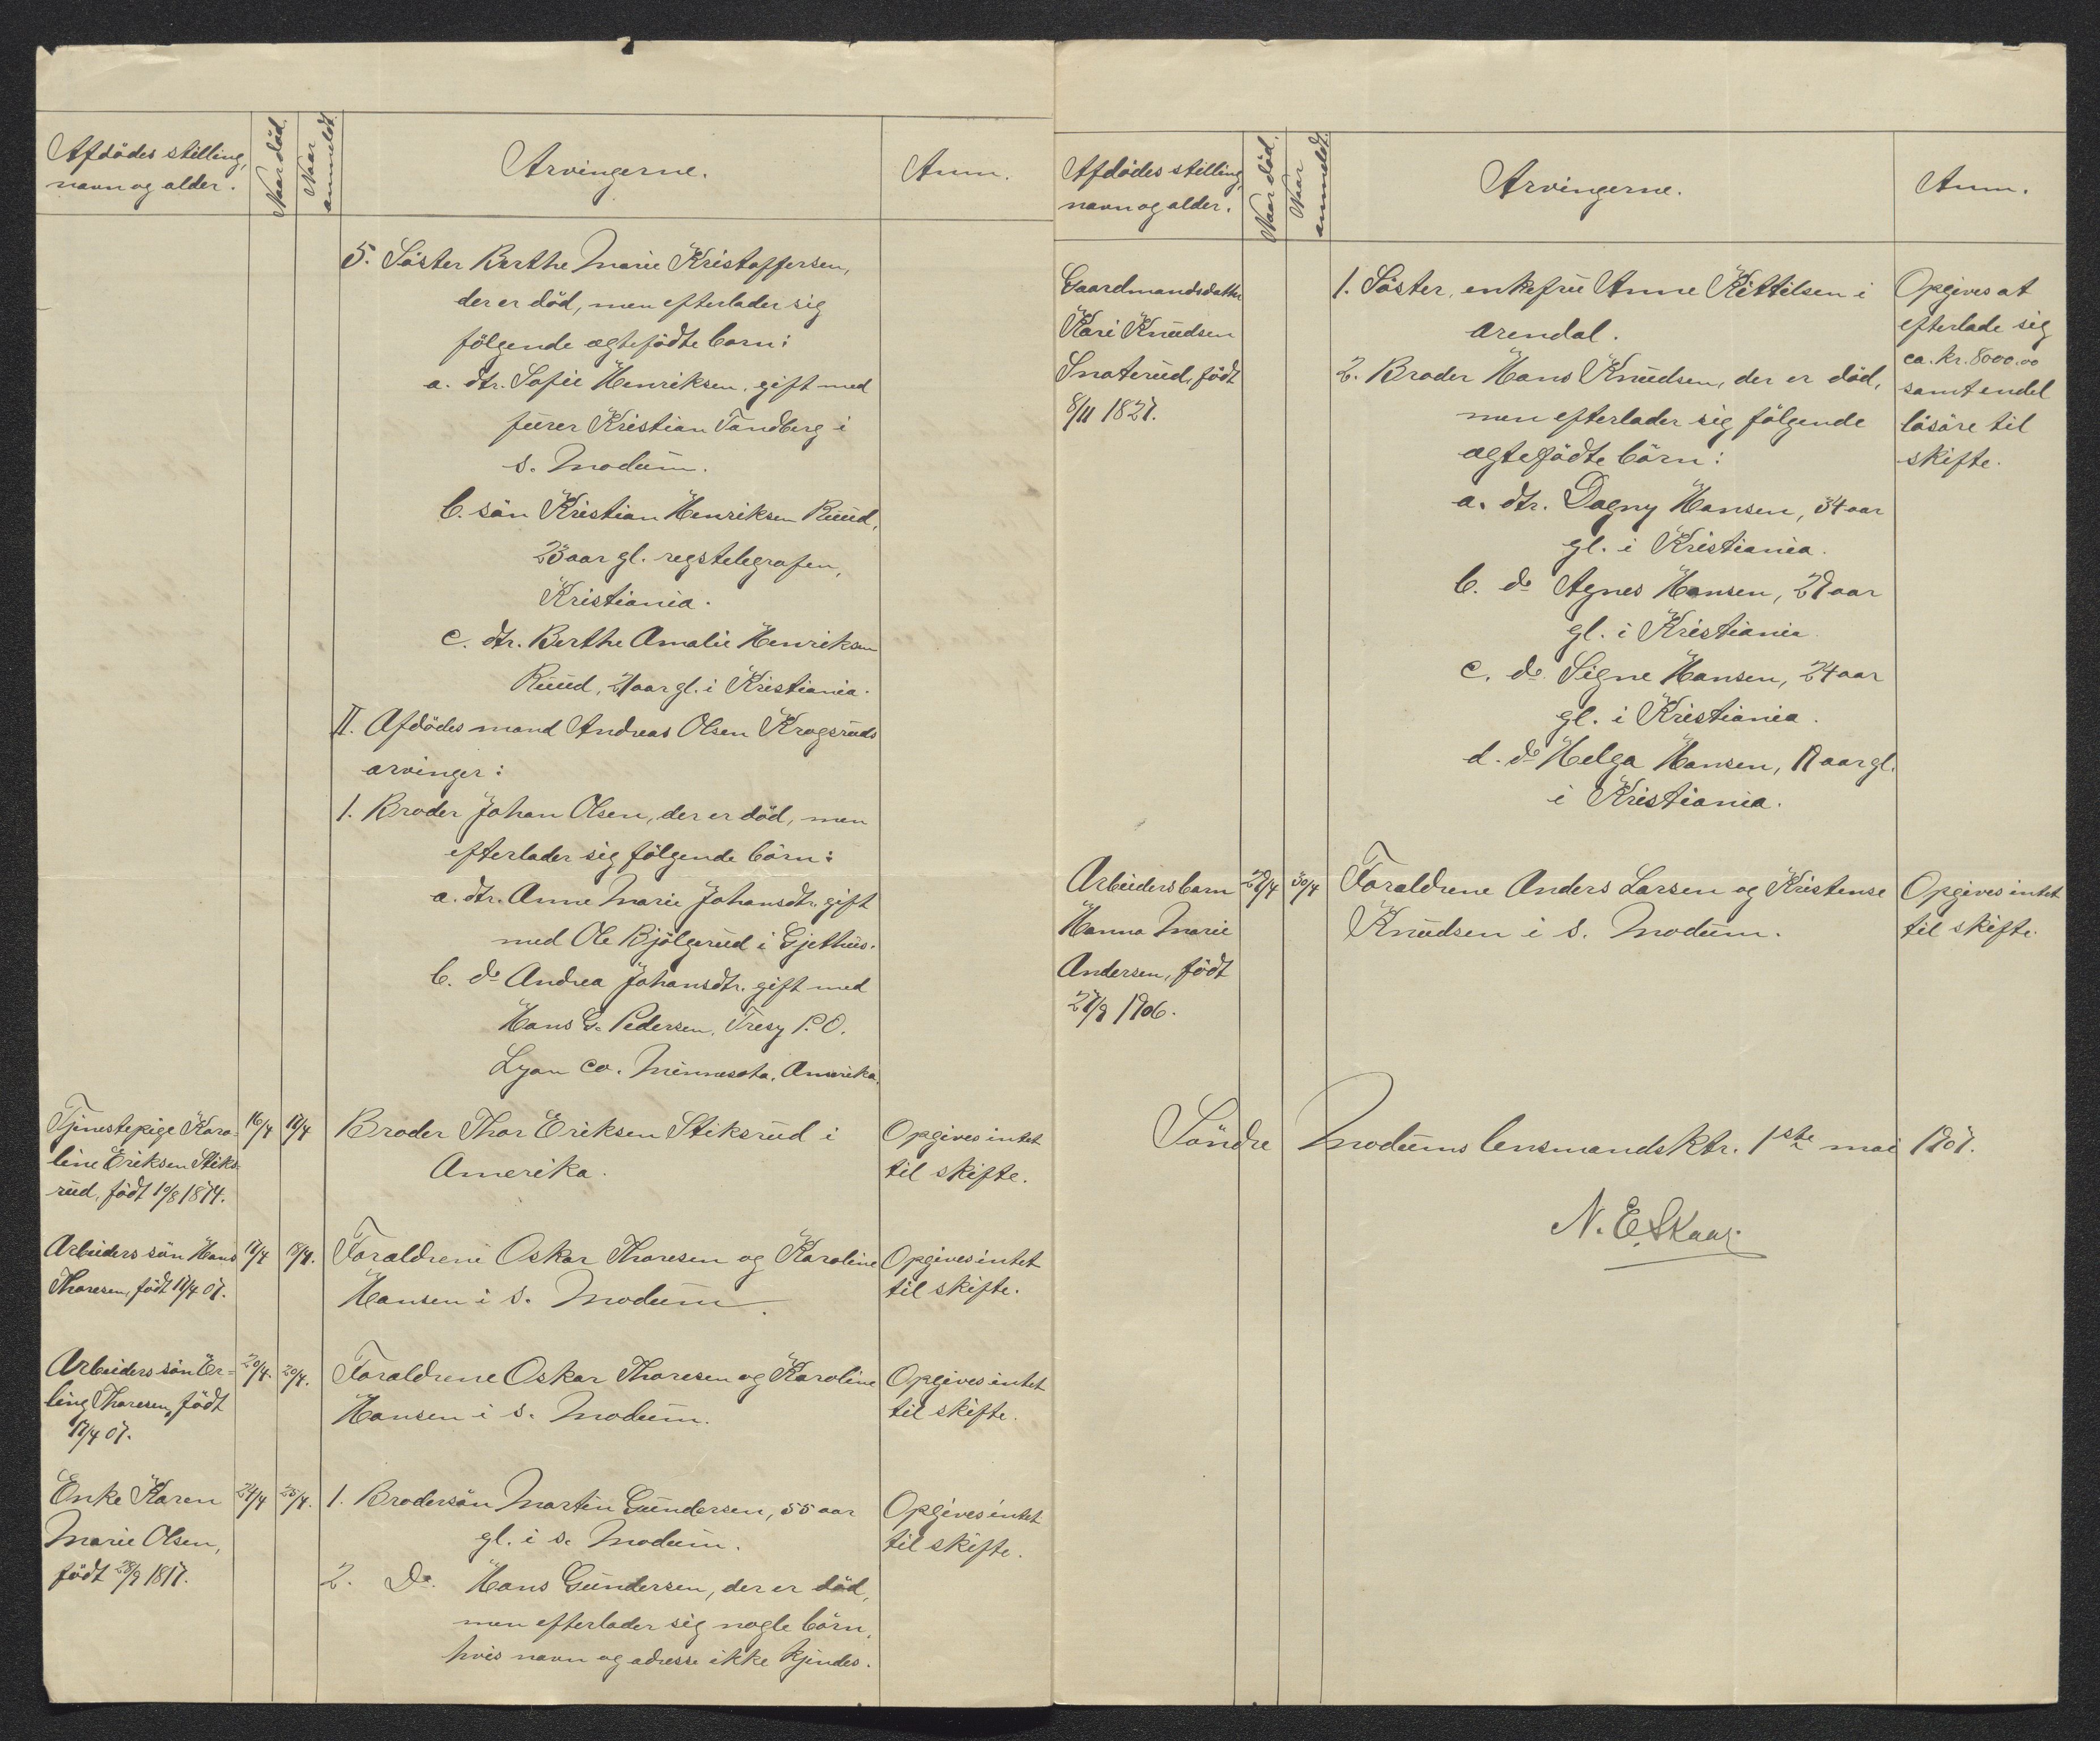 Afdödes stilling,
navn og alder.
Naar död.
Naar
anmeldt.
Arvingerne.
Anm.
5. Söster Berthe Marie Kristoffersen,
der er död, men efterlader sig
fölgende ægtefödte barn:
a. dtr. Sofie Henriksen, gift med
furer Kristian Tandberg i
s. Modum.
b. sön Kristian Henriksen Ruud,
23 aar gl. regstelegrafen,
Kristiania.
c. dtr. Berthe Amalie Henriksen
Ruud, 21 aar gl. i Kristiania.
II. Afdödes mand Andreas Olsen Krogsruds
arvinger:
1. Broder Johan Olsen, der er död, men
efterlader sig fölgende börn:
a. dtr. Anne Marie Johansdtr. gift
med Ole Bjölgerud i Gjethus.
b. do Andrea Johansdtr. gift med
Hans G. Pedersen, Tresy P.O.
Lyon Co. Minnesota. Amerika.
Tjenestepige Karo-
line Eriksen Stiks-
rud, födt 10/8 1874.
16/4
17/4
Broder Thor Eriksen Stiksrud i
Amerika.
Opgives intet
til skifte.
Arbeiders sön Hans
Thoresen, födt 17/4 07.
17/4
18/4.
Foraldrene Oskar Thoresen og Karoline
Hansen i s. Modum.
Opgives intet
til skifte.
Arbeiders sön Er-
ling Thoresen, födt
17/4 07.
20/4.
20/4.
Foraldrene Oskar Thoresen og Karoline
Hansen i s. Modum.
Opgives intet
til skifte.
Enke Karen
Marie Olsen,
födt 28/9 1817.
24/4
25/4.
1. Brodersön Martin Gundersen, 55 aar
gl. i s. Modum.
2. Do. Hans Gundersen, der er död,
men efterlader sig nogle börn,
hvis navn og adresse ikke kjendes.
Opgives intet
til skifte.
Afdödes stilling,
navn og alder.
Naar död.
Naar
anmeldt.
Arvingerne.
Anm.
Gaardmandsdatter
Kari Knudsen
Snaterud, födt
8/11 1827.
1. Söster, enkefru Anne Kittilsen i
Arendal.
2. Broder Hans Knudsen, der er död,
men efterlader sig fölgende
ægtefödte börn:
a. dtr. Dagny Hansen, 34 aar
gl. i Kristiania.
b. do Agnes Hansen, 27 aar
gl. i Kristiania.
c. do Signe Hansen, 24 aar
gl. i Kristiania.
d. do Helga Hansen, 17 aar gl.
i Kristiania.
Opgives at
efterlade sig
ca. kr. 8000.00
samt endel
lösöre til
skifte.
Arbeidersbarn
Hanna Marie
Andersen, födt
30/4
Foraldrene Anders Larsen og Kristense
Knudsen i s. Modum.
Opgives intet
til skifte.
Söndre Modums lensmandsktr. 1ste mai 1907.
N. E. Skaar.